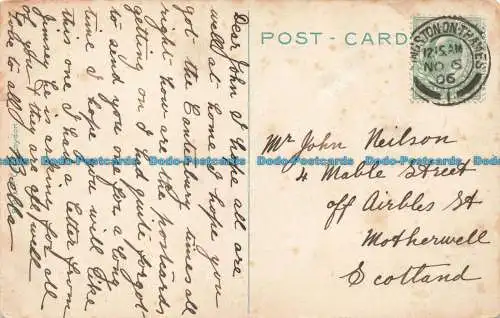 Dear John I hope all are
well at home I hope you
got the Canterbury times all
right how are the postcards
getting on I had quite forgot
to send you one for a long
time I hope you will like
this one I had a letter from
Jimsey he is asking for all
of you I they are all well
to all
Bella
POST - CARD
KINGSTON-ON-THAMES
12.15 AM
NO 6
06
Mr John Neilson
4 Mable Street
off Airbles St
Motherwell
Scotland